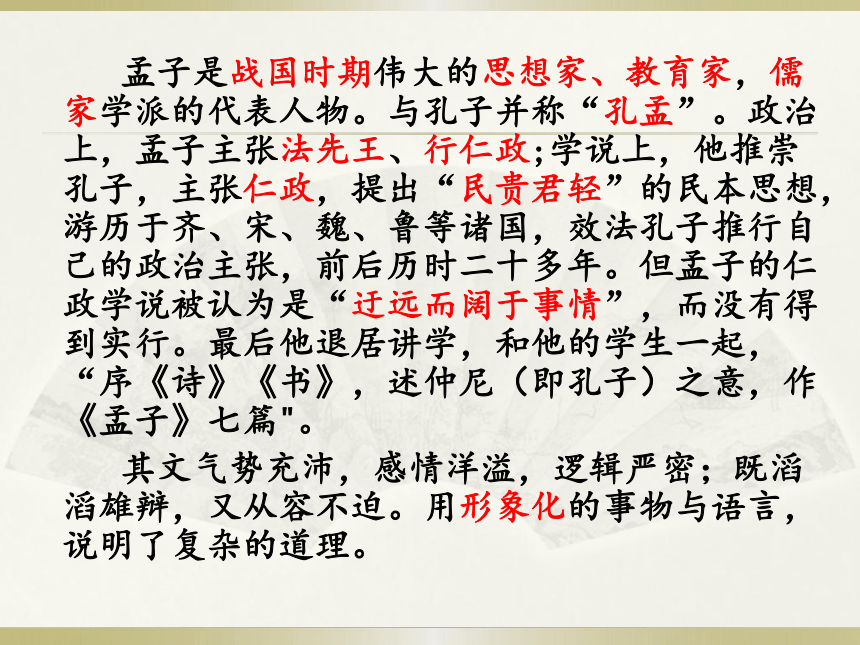 孟子是战国时期伟大的思想家、教育家，儒
家学派的代表人物。与孔子并称“孔孟”。政治
上，孟子主张法先王、行仁政;学说上，他推崇
孔子，主张仁政，提出“民贵君轻”的民本思想，
游历于齐、宋、魏、鲁等诸国，效法孔子推行自
己的政治主张，前后历时二十多年。但孟子的仁
政学说被认为是“迂远而阔于事情”，而没有得
到实行。最后他退居讲学，和他的学生一起，
“序《诗》《书》，述仲尼（即孔子）之意，作
《孟子》七篇"。
其文气势充沛，感情洋溢，逻辑严密；既滔
滔雄辩，又从容不迫。用形象化的事物与语言，
说明了复杂的道理。